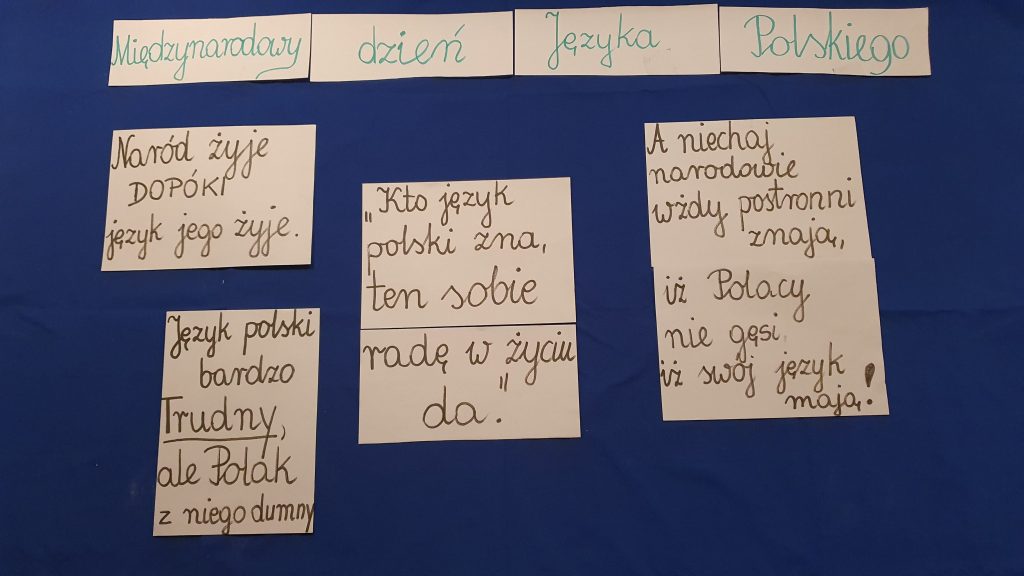 Międzynarodowy dzień Języka Polskiego
Naród żyje
DOPÓKI
język jego żyje.
Język polski
bardzo
Trudny,
ale Polak
z niego dumny
„Kto język
polski zna,
ten sobie
radę w życiu
da."
A niechaj
narodowie
wżdy postronni
znają,
iż Polacy
nie gęsi,
iż swój język
mają!